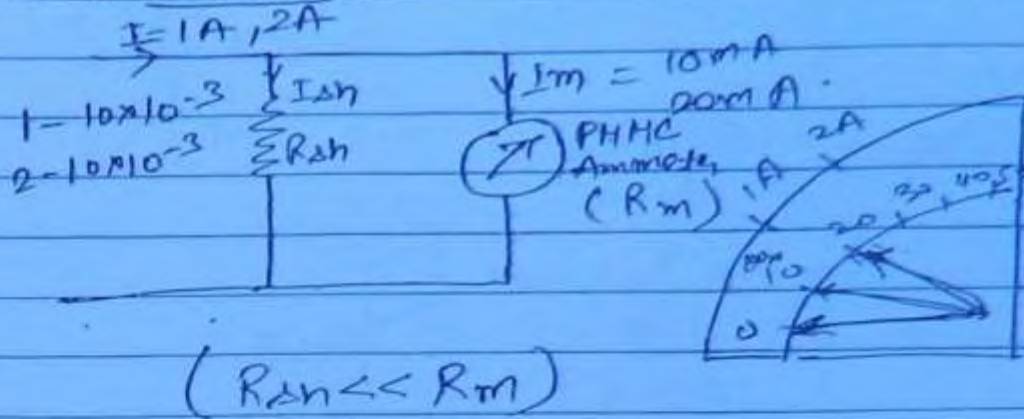 I = 1A, 2A
1 - 10×10-3
2 - 10×10-3
Ish
Rsh
Im = 10mA
20mA.
PMMC
Ammeter
(Rm)
1A
2A
0
10
20
30
40
(Rsh << Rm)